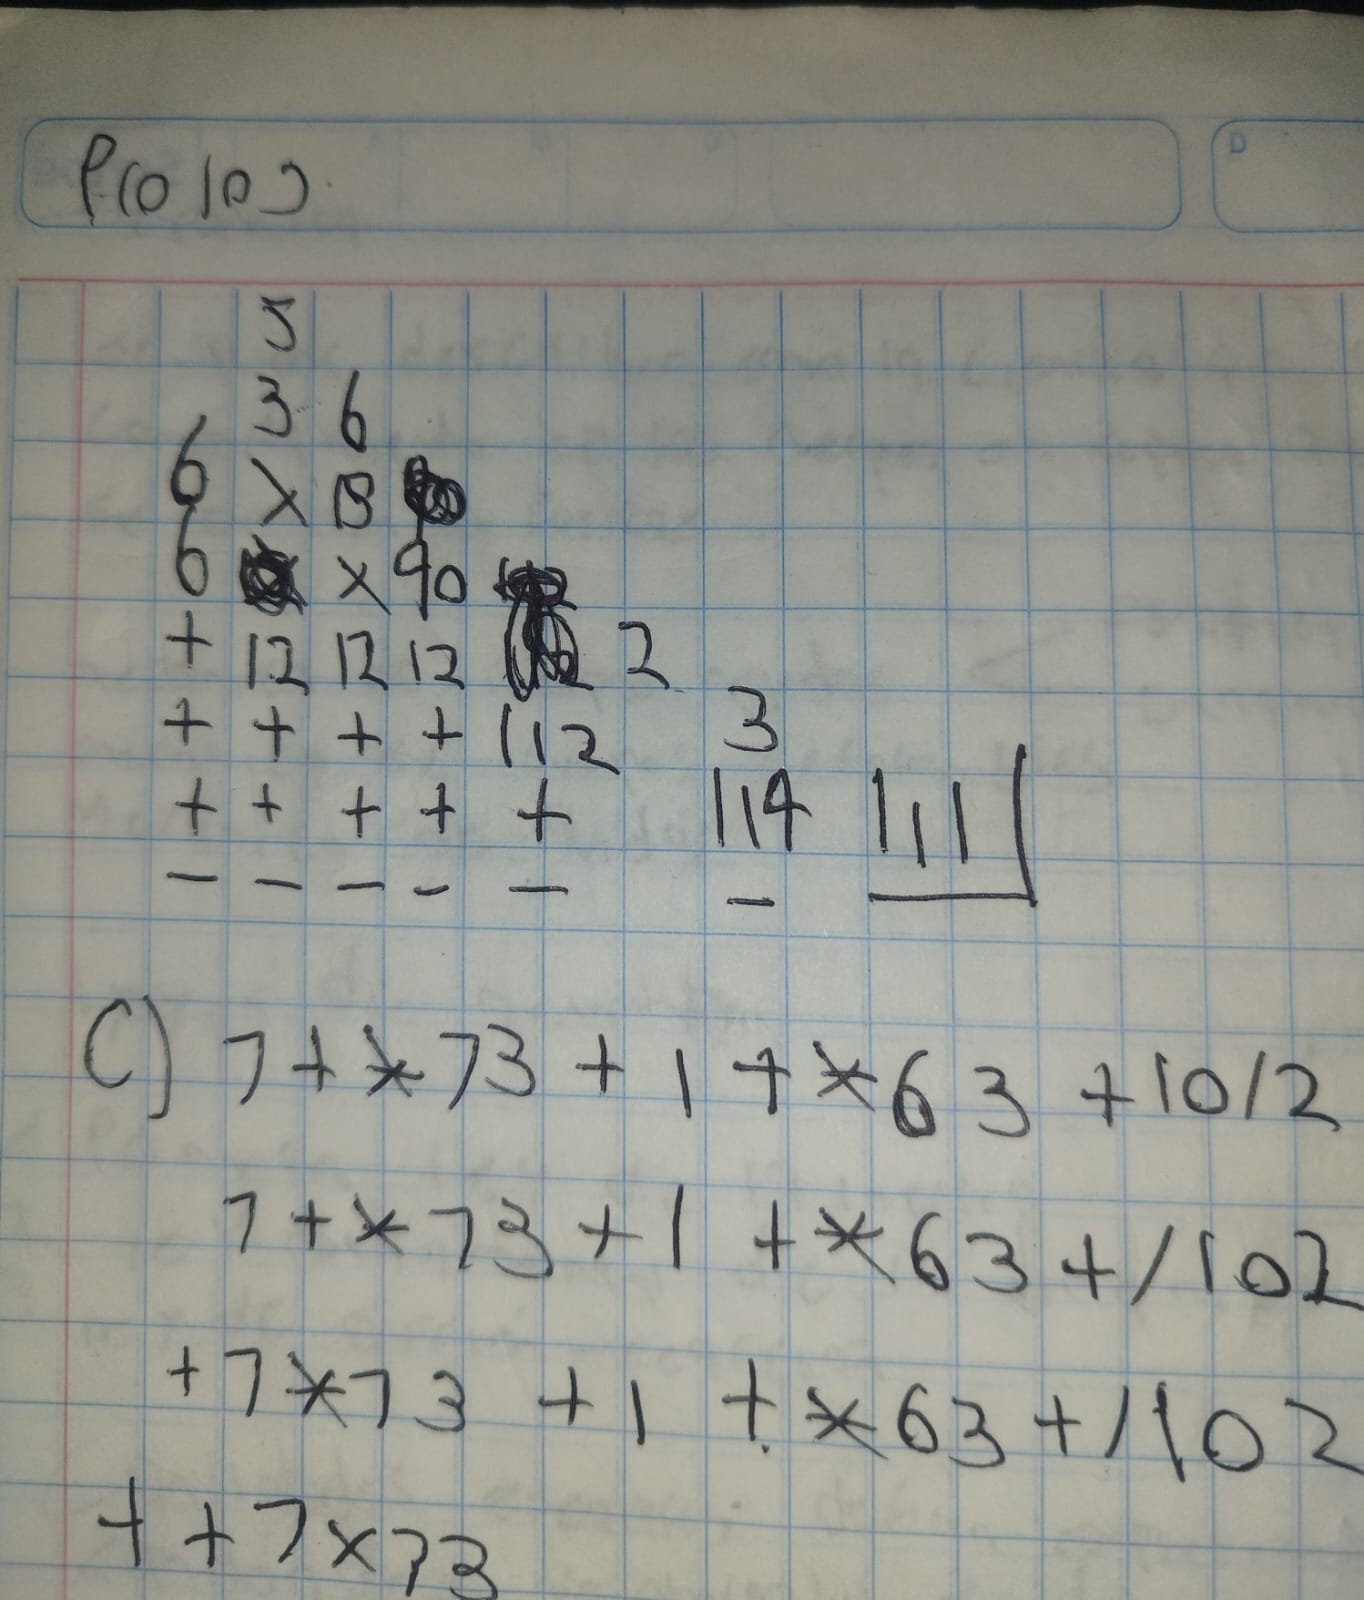 Prolog
D
5
3 6
6 x B
6 x 90
+ 12 12 12 2
+ + + + 112 3
+ + + + + 114 111
- - - - - -
C) 7 + * 73 + 1 + * 63 + 10 / 2
7 + * 73 + 1 + * 63 + / 102
+ 7 * 73 + 1 + * 63 + / 102
+ + 7 * 73